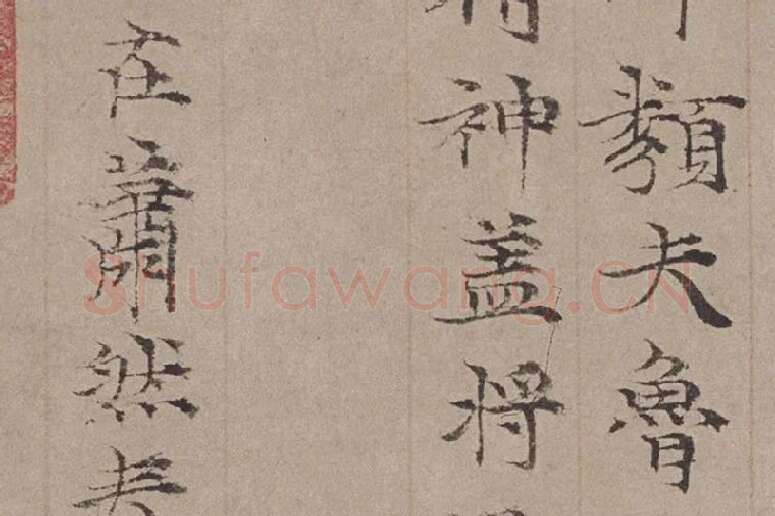 類夫魯
神盖将
在蕭然
Shufawang.CN